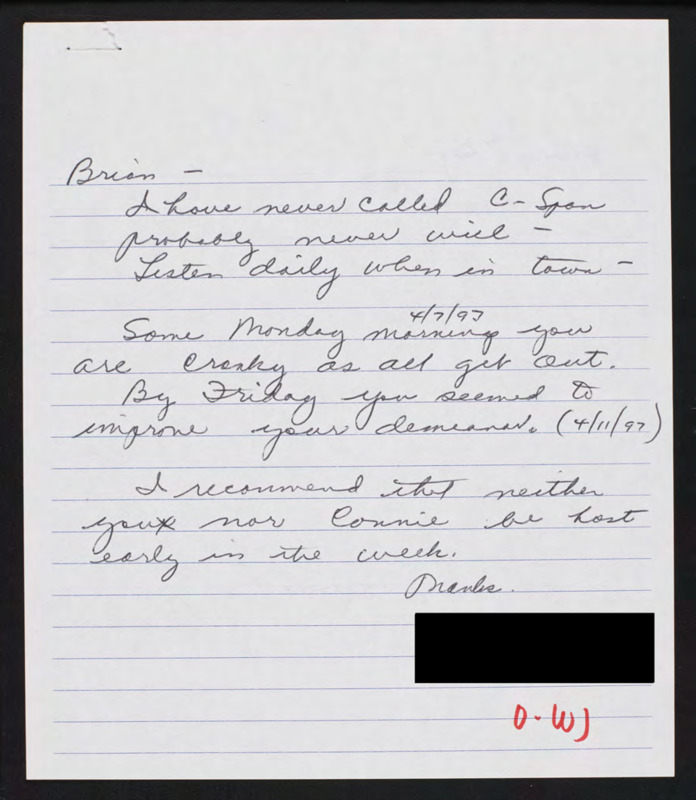 Brian –
I have never called C-Span
probably never will –
Listen daily when in town –
4/7/97
Some Monday mornings you
are cranky as all get out.
By Friday you seemed to
improve your demeanor. (4/11/97)
I recommend that neither
you nor Connie be host
early in the week.
Thanks.
O-WJ